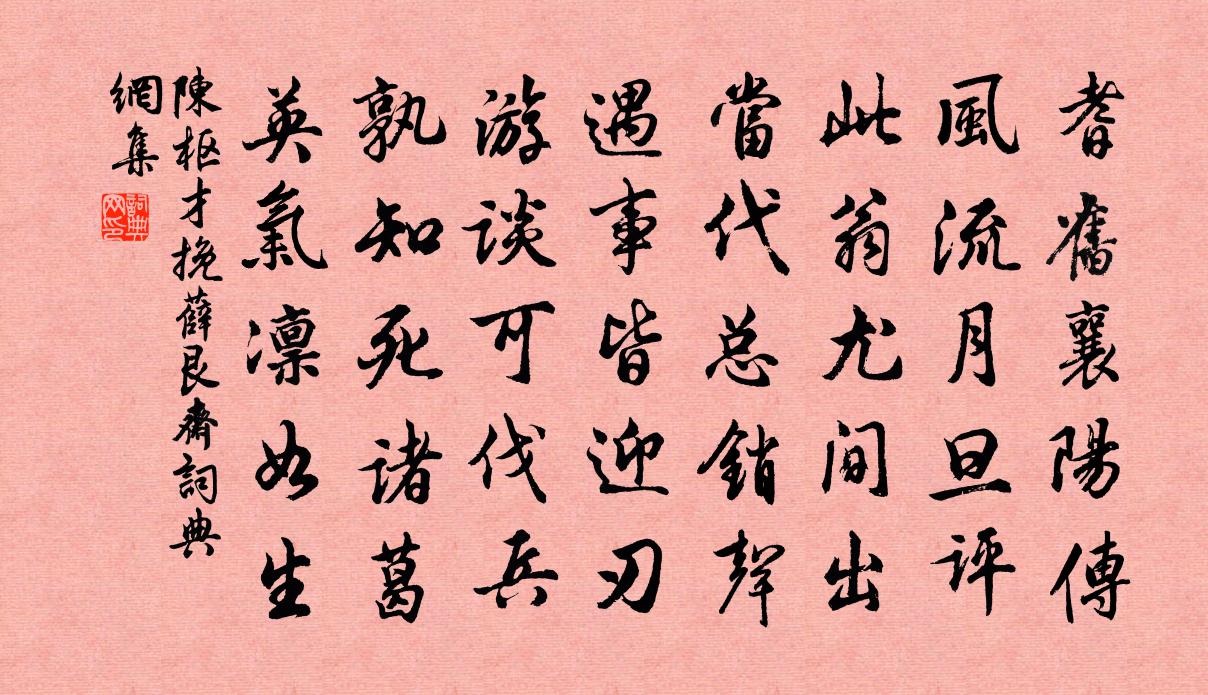 耆舊襄陽傳
風流月旦評
此翁尤间出
當代总銷聲
遇事皆迎刃
游谈可伐兵
孰知死诸葛
英氣凛如生
陳枢才挽薛艮齋詞典
網集
詞典
网印